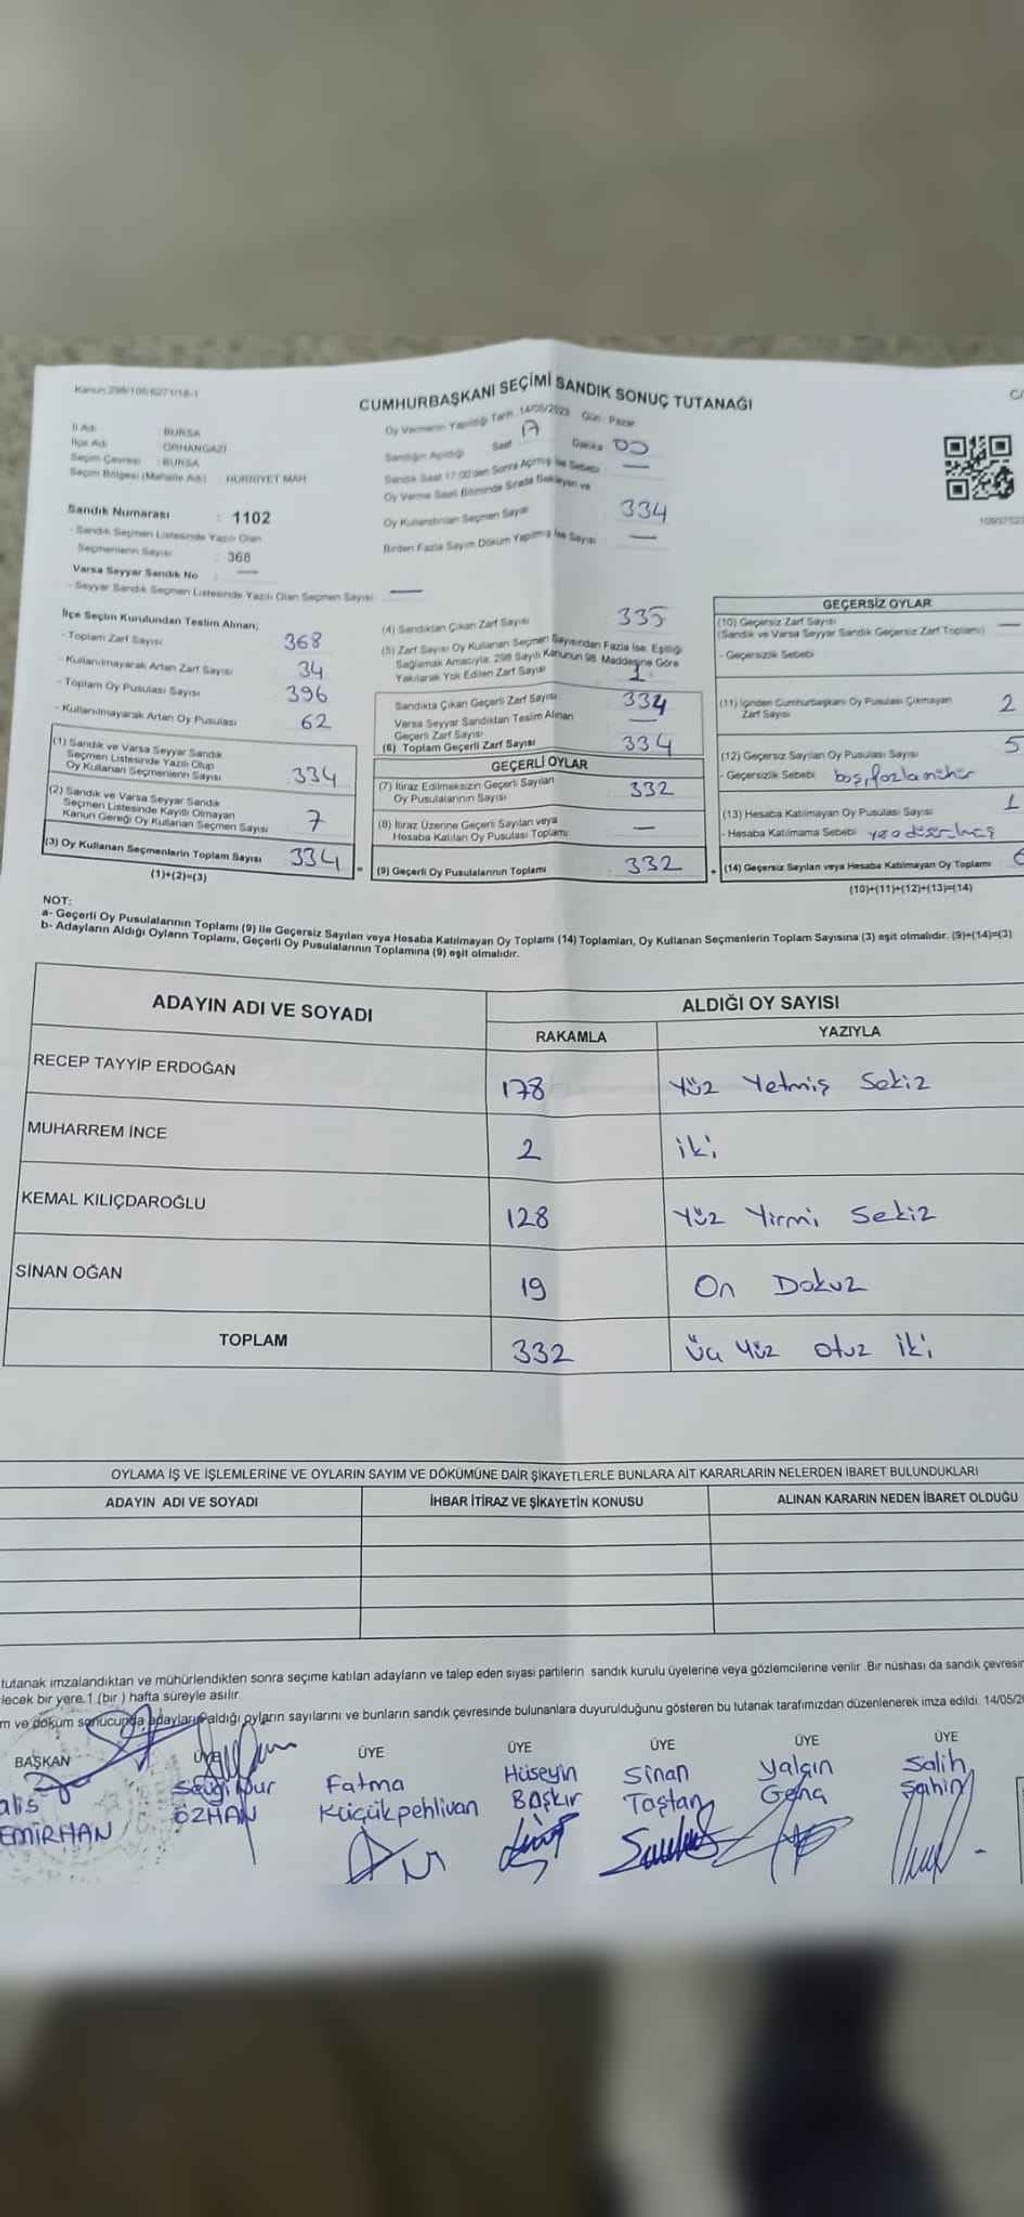 Kanun 298/105-6271/18-1
CUMHURBAŞKANI SEÇİMİ SANDIK SONUÇ TUTANAĞI
Oy Vermenin Yapıldığı Tarih 14/05/2023 Gün: Pazar
İl Adı : BURSA
İlçe Adı : ORHANGAZİ
Seçim Çevresi : BURSA
Seçim Bölgesi (Mahalle Adı) : HÜRRİYET MAH
Sandık Numarası : 1102
- Sandık Seçmen Listesinde Yazılı Olan
Seçmenlerin Sayısı : 368
Varsa Seyyar Sandık No : —
- Seyyar Sandık Seçmen Listesinde Yazılı Olan Seçmen Sayısı —
Sandığın Açıldığı Saat 17 Dakika 00
Sandık Saat 17:00'den Sonra Açılmış İse Sebebi —
Oy Verme Saati Bitiminde Sırada Bekleyen ve
Oy Kullandırılan Seçmen Sayısı 334
Birden Fazla Sayım Döküm Yapılmış İse Sayısı —
İlçe Seçim Kurulundan Teslim Alınan;
- Toplam Zarf Sayısı 368
- Kullanılmayarak Artan Zarf Sayısı 34
- Toplam Oy Pusulası Sayısı 396
- Kullanılmayarak Artan Oy Pusulası 62
(1) Sandık ve Varsa Seyyar Sandık
Seçmen Listesinde Yazılı Olup
Oy Kullanan Seçmenlerin Sayısı 334
(2) Sandık ve Varsa Seyyar Sandık
Seçmen Listesinde Kayıtlı Olmayan
Kanun Gereği Oy Kullanan Seçmen Sayısı 7
(3) Oy Kullanan Seçmenlerin Toplam Sayısı 334
(1)+(2)=(3)
(4) Sandıktan Çıkan Zarf Sayısı 335
(5) Zarf Sayısı Oy Kullanan Seçmen Sayısından Fazla İse, Eşitliği
Sağlamak Amacıyla, 298 Sayılı Kanunun 98. Maddesine Göre
Yakılarak Yok Edilen Zarf Sayısı 1
Sandıkta Çıkan Geçerli Zarf Sayısı 334
Varsa Seyyar Sandıktan Teslim Alınan
Geçerli Zarf Sayısı —
(6) Toplam Geçerli Zarf Sayısı 334
GEÇERLİ OYLAR
(7) İtiraz Edilmeksizin Geçerli Sayılan
Oy Pusulalarının Sayısı 332
(8) İtiraz Üzerine Geçerli Sayılan veya
Hesaba Katılan Oy Pusulası Toplamı —
(9) Geçerli Oy Pusulalarının Toplamı 332
GEÇERSİZ OYLAR
(10) Geçersiz Zarf Sayısı
(Sandık ve Varsa Seyyar Sandık Geçersiz Zarf Toplamı) —
- Geçersizlik Sebebi
(11) İçinden Cumhurbaşkanı Oy Pusulası Çıkmayan
Zarf Sayısı 2
(12) Geçersiz Sayılan Oy Pusulası Sayısı 5
- Geçersizlik Sebebi boş, fazla mühür
(13) Hesaba Katılmayan Oy Pusulası Sayısı 1
- Hesaba Katılmama Sebebi
(14) Geçersiz Sayılan veya Hesaba Katılmayan Oy Toplamı
(10)+(11)+(12)+(13)=(14)
NOT:
a- Geçerli Oy Pusulalarının Toplamı (9) ile Geçersiz Sayılan veya Hesaba Katılmayan Oy Toplamı (14) Toplamları, Oy Kullanan Seçmenlerin Toplam Sayısına (3) eşit olmalıdır. (9)+(14)=(3)
b- Adayların Aldığı Oyların Toplamı, Geçerli Oy Pusulalarının Toplamına (9) eşit olmalıdır.
ADAYIN ADI VE SOYADI
ALDIĞI OY SAYISI
RAKAMLA YAZIYLA
RECEP TAYYİP ERDOĞAN 178 Yüz Yetmiş Sekiz
MUHARREM İNCE 2 iki
KEMAL KILIÇDAROĞLU 128 Yüz Yirmi Sekiz
SİNAN OĞAN 19 On Dokuz
TOPLAM 332 Üç Yüz otuz iki
OYLAMA İŞ VE İŞLEMLERİNE VE OYLARIN SAYIM VE DÖKÜMÜNE DAİR ŞİKAYETLERLE BUNLARA AİT KARARLARIN NELERDEN İBARET BULUNDUKLARI
ADAYIN ADI VE SOYADI İHBAR İTİRAZ VE ŞİKAYETİN KONUSU ALINAN KARARIN NEDEN İBARET OLDUĞU
tutanak imzalandıktan ve mühürlendikten sonra seçime katılan adayların ve talep eden siyasi partilerin sandık kurulu üyelerine veya gözlemcilerine verilir. Bir nüshası da sandık çevresin
lecek bir yere 1 (bir) hafta süreyle asılır.
m ve döküm sonucunda adayların aldığı oyların sayılarını ve bunların sandık çevresinde bulunanlara duyurulduğunu gösteren bu tutanak tarafımızdan düzenlenerek imza edildi. 14/05/20
BAŞKAN ÜYE ÜYE ÜYE ÜYE ÜYE ÜYE
alis Sevgi Nur Fatma Hüseyin Sinan Yalçın Salih
EMİRHAN ÖZHAN Küçükpehlivan Başkır Taştan Genç Şahin